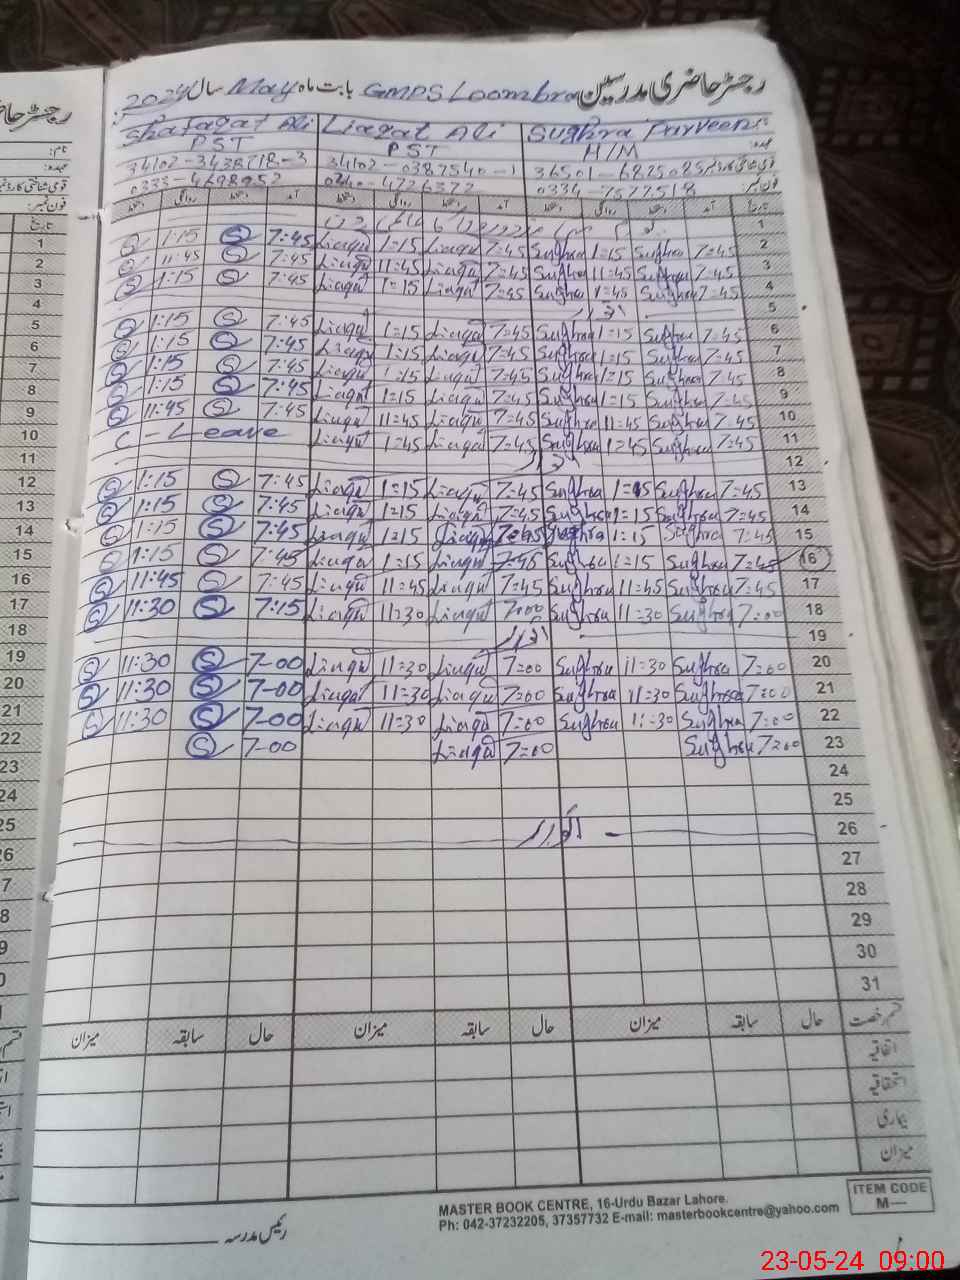 رجسٹر حاضری مدرسین GMPS Loombra بابت ماہ May سال 2024
Sughra Parveen Liaqat Ali Shafaqat Ali
H/M PST PST
قومی شناختی کارڈ نمبر
فون نمبر: 0334-7577518
تاریخ آمد دستخط روانگی دستخط آمد دستخط روانگی دستخط آمد دستخط روانگی دستخط
1
2 7=45 Sughra 1=15 Sughra 7=45 Liaqat 1=15 Liaqat 7:45 S 1:15 S
3 7=45 Sughra 11=45 Sughra 7=45 Liaqat 11=45 Liaqat 7:45 S 11:45 S
4 7=45 Sughra 1=45 Sughra 7=45 Liaqat 1=15 Liaqat 7:45 S 1:15 S
5 اتوار
6 7=45 Sughra 1=15 Sughra 7=45 Liaqat 1=15 Liaqat 7:45 S 1:15 S
7 7=45 Sughra 1=15 Sughra 7=45 Liaqat 1=15 Liaqat 7:45 S 1:15 S
8 7=45 Sughra 1=15 Sughra 7=45 Liaqat 1=15 Liaqat 7:45 S 1:15 S
9 7=45 Sughra 1=15 Sughra 7=45 Liaqat 1=15 Liaqat 7:45 S 1:15 S
10 7=45 Sughra 11=45 Sughra 7=45 Liaqat 11=45 Liaqat 7:45 S 11:45 S
11 7=45 Sughra 1=45 Sughra 7=45 Liaqat 1=45 Liaqat C-Leave
12 اتوار
13 7=45 Sughra 1=15 Sughra 7=45 Liaqat 1=15 Liaqat 7:45 S 1:15 S
14 7=45 Sughra 1=15 Sughra 7=45 Liaqat 1=15 Liaqat 7:45 S 1:15 S
15 7=45 Sughra 1=15 Sughra 7=45 Liaqat 1=15 Liaqat 7:45 S 1:15 S
16 7=45 Sughra 1=15 Sughra 7=45 Liaqat 1=15 Liaqat 7:45 S 1:15 S
17 7=45 Sughra 11=45 Sughra 7=45 Liaqat 11=45 Liaqat 7:45 S 11:45 S
18 7=00 Sughra 11=30 Sughra 7=00 Liaqat 11=30 Liaqat 7:15 S 11:30 S
19 اتوار
20 7=00 Sughra 11=30 Sughra 7=00 Liaqat 11=30 Liaqat 7-00 S 11:30 S
21 7=00 Sughra 11=30 Sughra 7=00 Liaqat 11=30 Liaqat 7-00 S 11:30 S
22 7=00 Sughra 11=30 Sughra 7=00 Liaqat 11=30 Liaqat 7-00 S 11:30 S
23 7=00 Sughra 7=00 Liaqat 7-00 S
24
25
26 اتوار
27
28
29
30
31
قسم رخصت حال سابقہ میزان حال سابقہ میزان حال سابقہ میزان
اتفاقیہ
استحقاقیہ
بیماری
میزان
رئیس مدرسہ
MASTER BOOK CENTRE, 16-Urdu Bazar Lahore.
Ph: 042-37232205, 37357732 E-mail: masterbookcentre@yahoo.com
ITEM CODE
M—
23-05-24 09:00